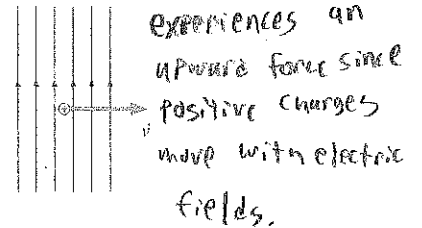 experiences an
upward force since
positive charges
v
move with electric
fields.